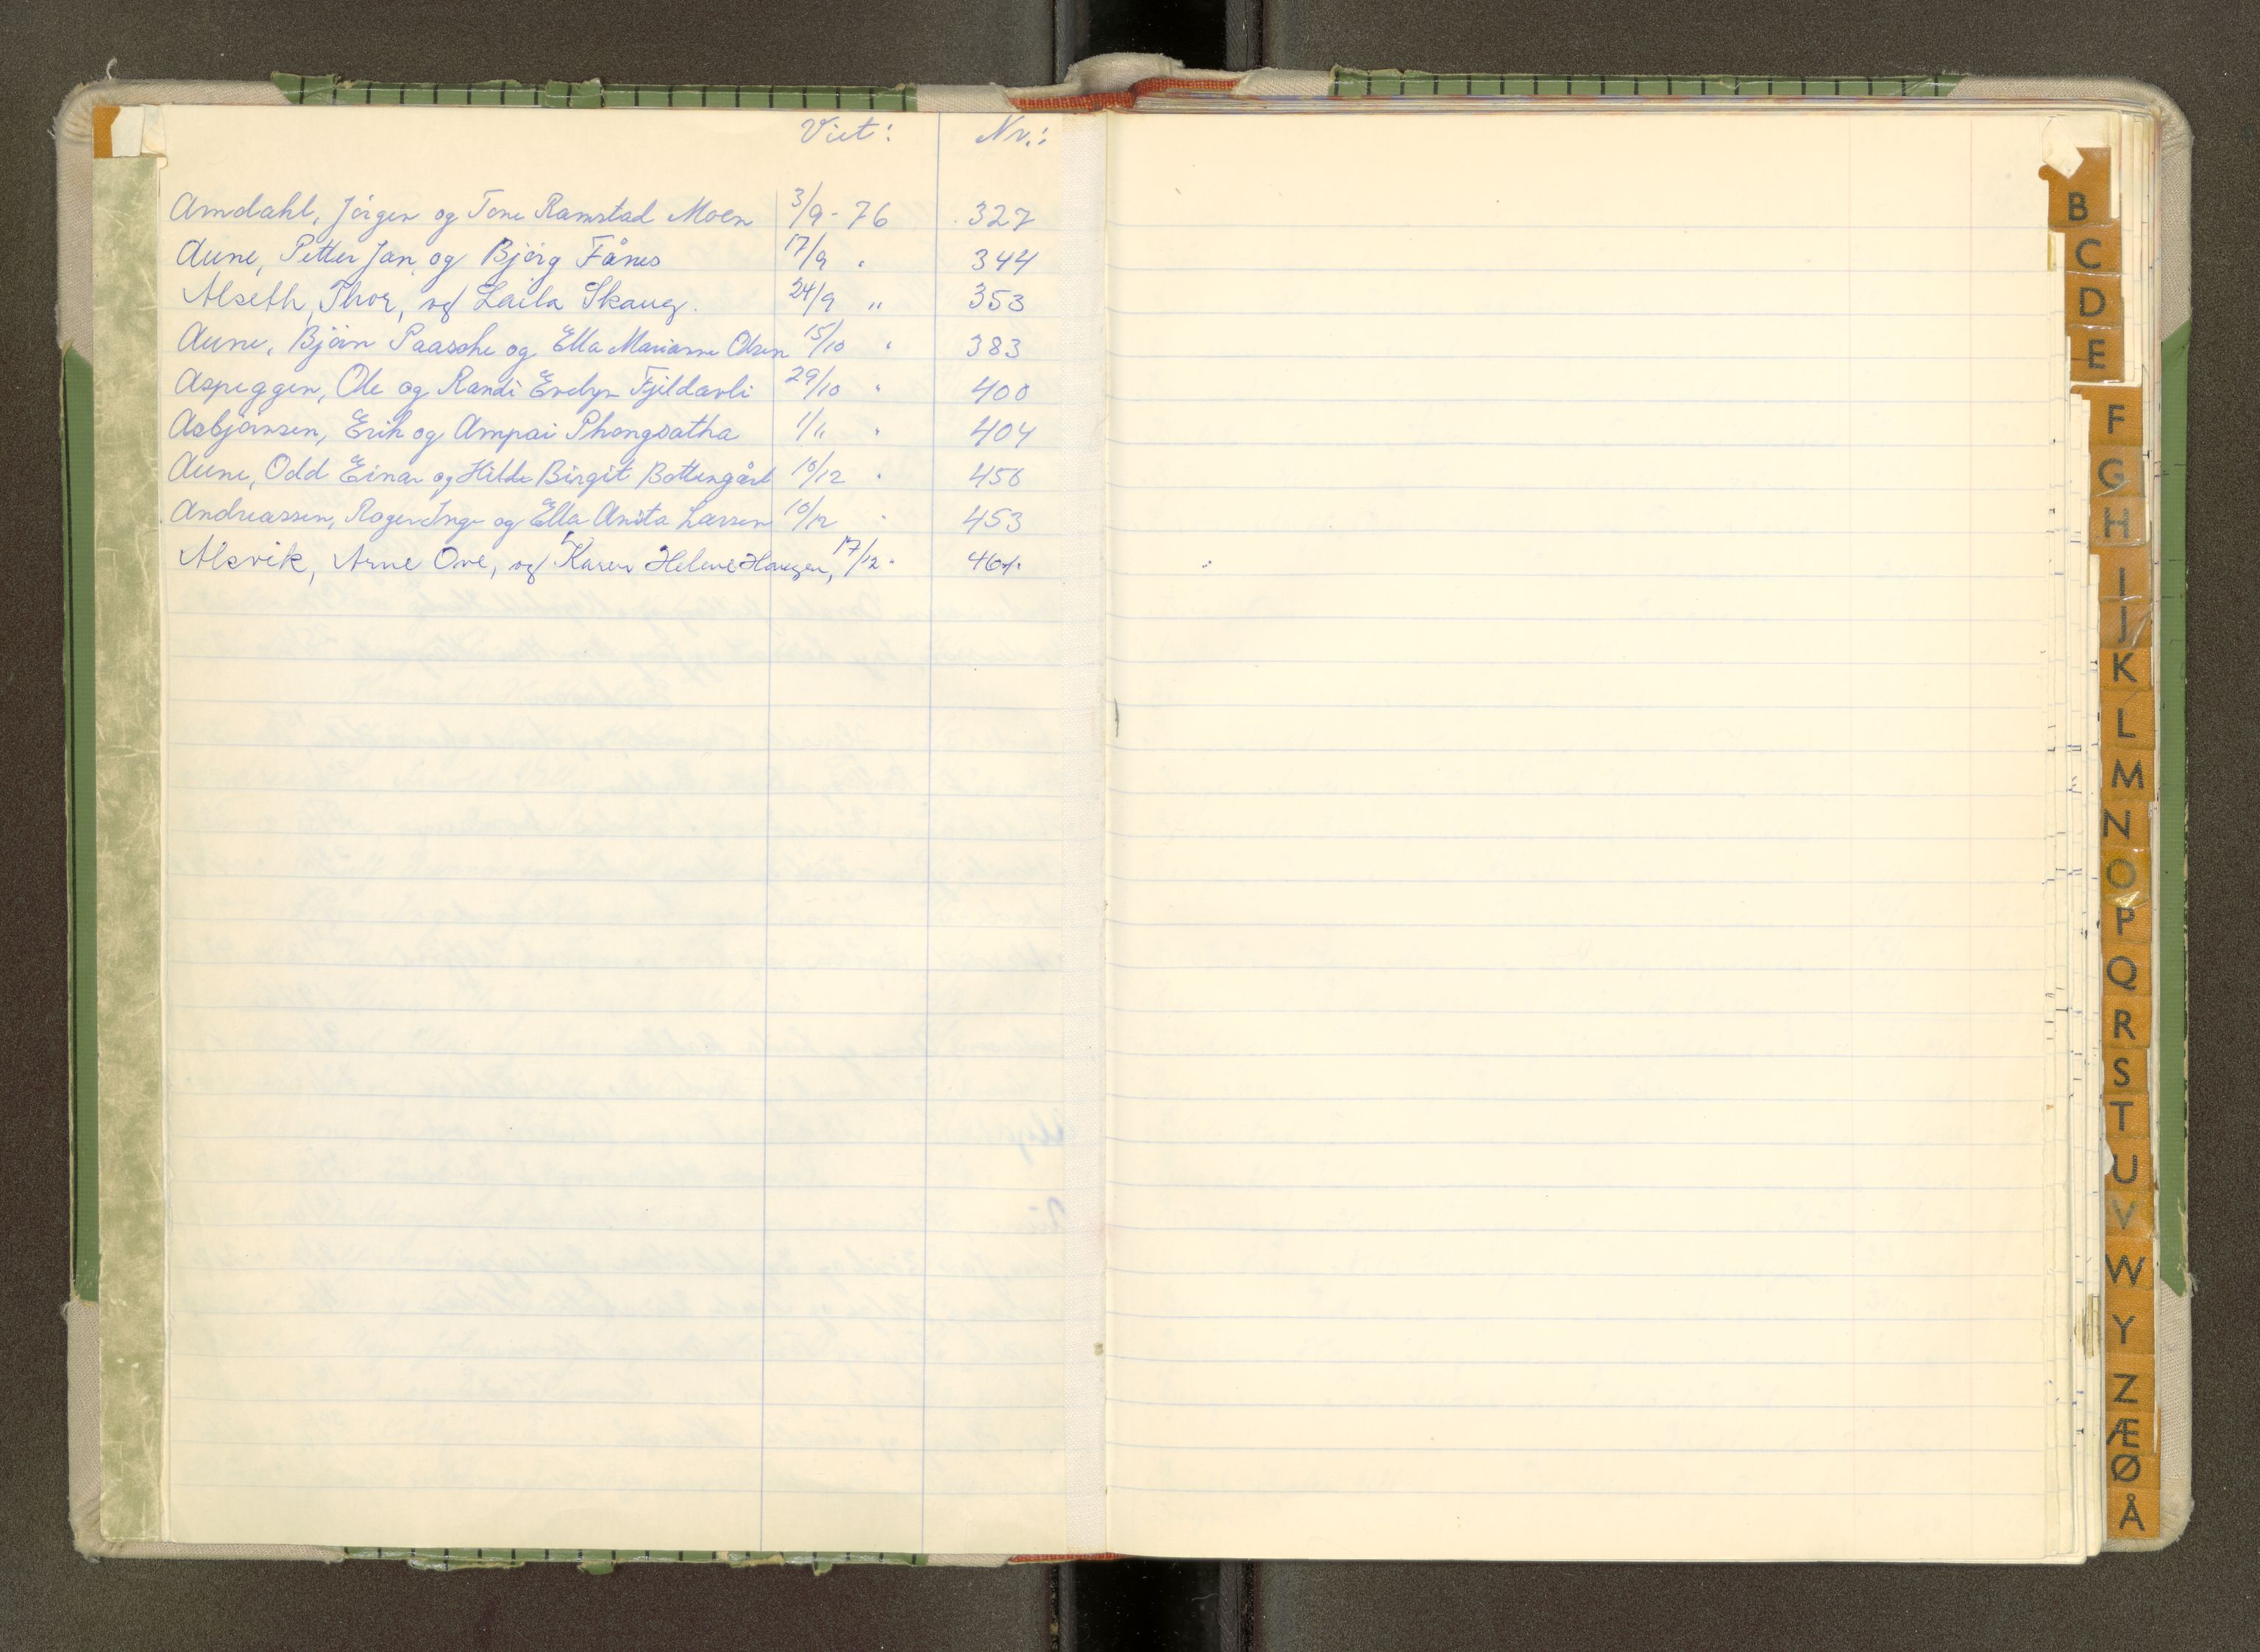 Viet: Nr.:
Amdahl, Jörgen og Tone Ramstad Moen 3/9 - 76 327
Aune, Petter Jan og Bjørg Fånes 17/9 " 344
Alseth, Thor, og Laila Skaug. 24/9 " 353
Aune, Björn Paasche og Ella Marianne Olsen 15/10 " 383
Aspeggen, Ole og Randi Evelyn Fjeldavli 29/10 " 400
Asbjörnsen, Erik og Ampai Phongsatha 1/11 " 404
Aune, Odd Einar og Hilde Birgit Bottengård 10/12 " 456
Andreassen, Roger Inge og Ella Anita Larsen 10/12 " 453
Alsvik, Arne Ove, og Karen Helene Haugen, 17/12 "
B
C
D
E
F
G
H
I
J
K
L
M
N
O
P
Q
R
S
T
U
V
W
Y
Z
Æ
Ø
Å